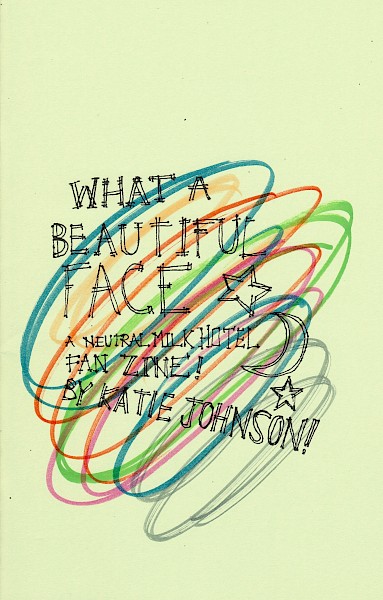 WHAT A
BEAUTIFUL
FACE
A NEUTRAL MILK HOTEL
FAN ZINE!
BY KATIE JOHNSON!!